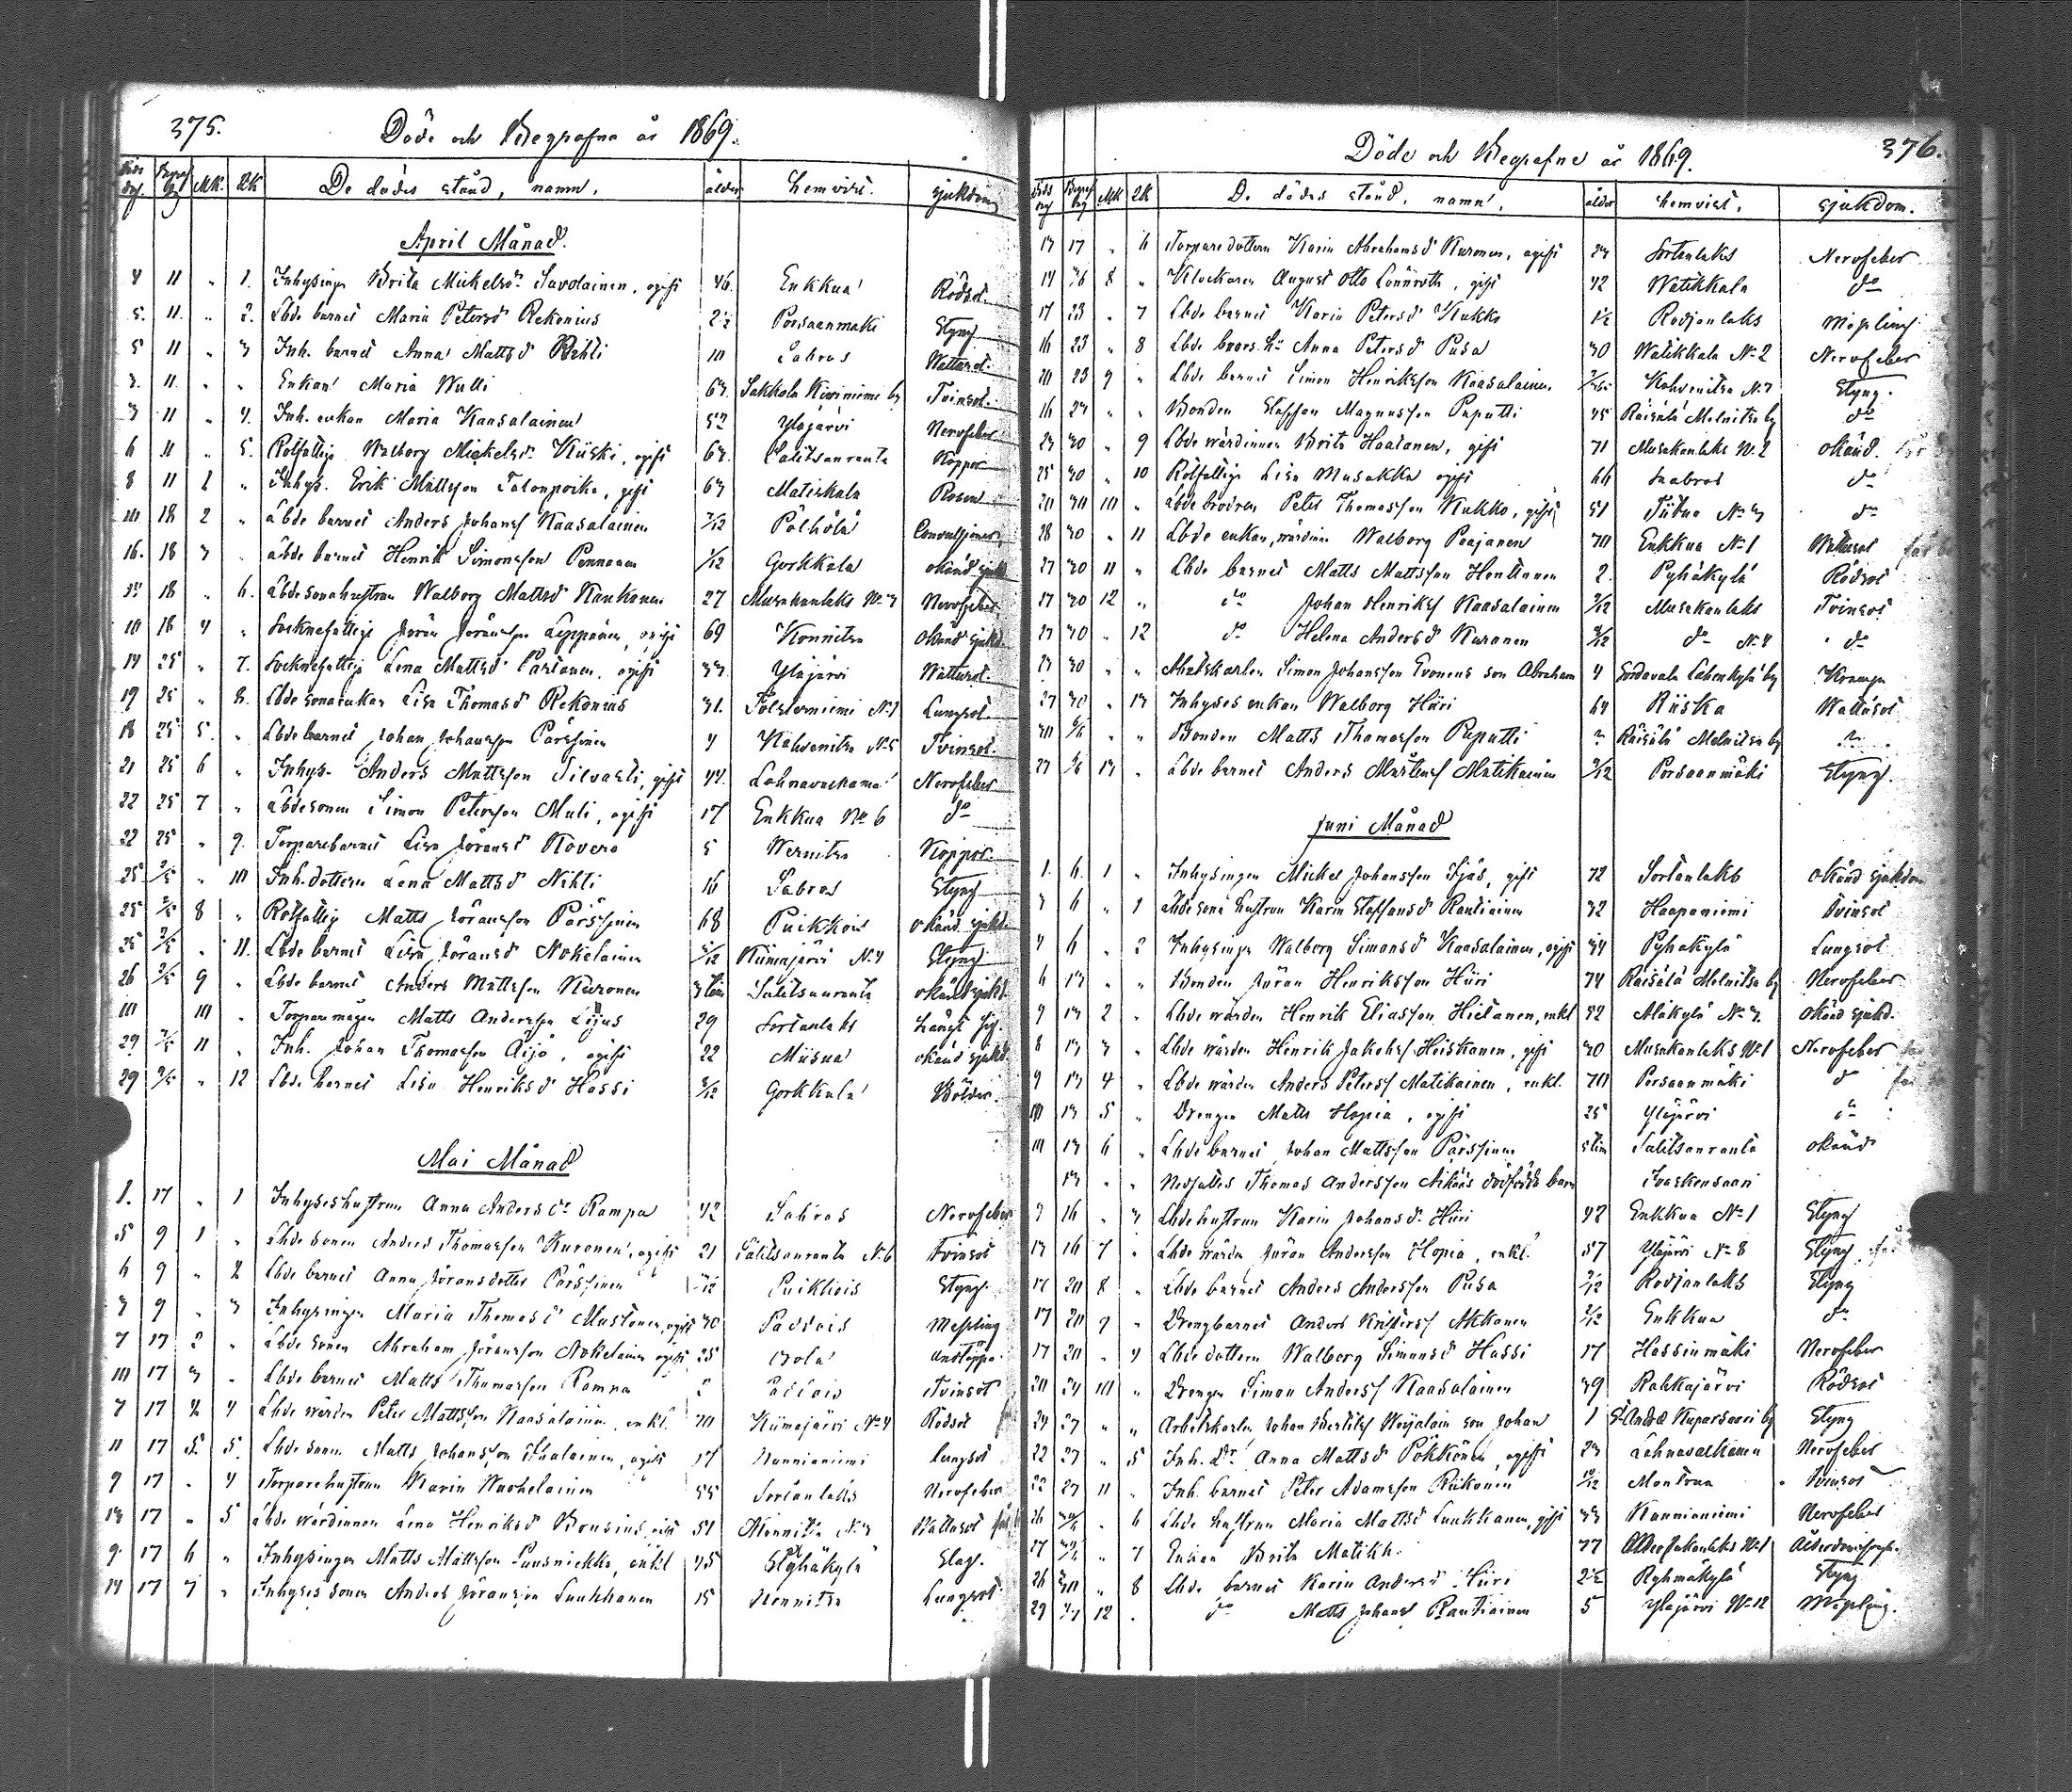 375.
Döde och Begrafne år 1869.
Döds dag. Begr. dag MK. QK De dödes stånd, namn. ålder hemvist. sjukdom
April Månad.
4 11 " 1. Inhysinge Brita Mickelsdr Savolainen, ogift 46. Enkkua Rödsot.
5. 11. " 2. Lbde barnet Maria Petersd Rekonius 2½ Porsaanmäki Styng
5 11 " 3 Inh. barnet Anna Mattsd Nihti 10 Sabros Wattusot.
3. 11. " " Enkan Maria Wulli 63. Sakkola Kiviniemi by Tvinsot.
3 11 " 4. Inh. enkan Maria Kaasalainen 52 Yläjärvi Nervfeber
6 11 " 5. Rotfattige Walborg Mickelsdr Kiiski, ogift 63. Salitsanranta Koppor
8 11 1 " Inhys. Erik Mattsson Talonpoika, gift 63 Matiskala Rosen
10 18 2 " Lbde barnet Anders Johansf Kaasalainen 7/12 Pölhölä Convulsioner
16. 18 3 Lbde barnet Henrik Simonsson Pennonen 1/12 Gorkkala okänd sjuk
15 18 " 6. Lbde sonahustrun Walborg Mattsd Kaukonen 27 Musakanlaks No 3 Nervfeber
10 18 4 " Socknefattige Jöran Jöransson Leppänen, ogift 69 Konnitsa Okänd sjukd.
14 25 " 7. Socknefattig Lena Mattsd Partanen, ogift 33. Yläjärvi Wattusot.
19 25 " 8. Lbde sonaenkan Lisa Thomasd Rekonius 31. N1 Lungsot.
18 25 5. " Lbde barnet Johan Johansson Pärssinen 4 Kahvenitsa No 5 Tvinsot.
21 25 6 " Inhys. Anders Mattsson Silvasti, gift 44. Lohnavalkama Nervfeber
22 25 7 " Lbdesonen Simon Petersson Muli, ogift 17 Enkkua No 6 do
22 25 " 9. Torparebarnet Lisa Jöransd Rovero 5 Wernitsa Koppor
25 2/5 " 10 Inh. dottern Lena Mattsd Nihti 16 Sabros Styng
25 2/5 8 " Rotfattig Matts Jöransson Pärssinen 68 Puikkois okänd sjukd.
25 2/5 " 11. Lbde barnet Lisa Jöransd Nokelainen 5/12 Kiimajärvi No 4 Styng
26 2/5 9 " Lbde barnet Anders Mattsson Kuronen 3 tim Salitsanranta okänd sjukd.
10 10 " Torparemågen Matts Andersson Ijäs 29 Sortanlaks
29 2/5 11 " Inh. Johan Thomasson Äijö, ogift 22 Miisua okänd sjukd.
29 2/5 " 12 Lbde barnet Lisa Henriksd Hassi 3/12 Gorkkala Bölder.
Mai Månad
1. 17 " 1 Inhyseshustrun Anna Andersdr Rampa 42 Sabros Nervfeber
5 9 1 " Lbde sonen Anders Thomasson Kuronen, ogift 21 Salitsanranta No 6 Tvinsot
6 9 " 2 Lbde barnet Anna Jöransdotter Pärssinen /12 Puikkois Styng.
3 9 " 3 Inhysingen Maria Thomasdr Mustonen, ogift 30 Padois Messling
7 17 2 " Lbde sonen Abraham Jöransson Nokelainen ogift 25 andtäppa.
10 17 3 " Lbde barnet Matts Thomasson Rampa Padois Tvinsot
7 17 4 Lbde värden Peter Mattsson Kaasalainen, enkl. 70 Kiimajärvi No 4 Rödsot
11 17 5. 5. Lbde sonen Matts Johansson Ihalainen, ogift 17 Kunnianiemi Lungsot
9 17 " 4 Torparehustrun Karin Waohelainen 55 Sortanlaks Nervfeber
13 17 " 5 Lbde värdinnan Lena Henriksd Bonsius, gift 51 Konnitsa No 3 Wattusot
9. 17 6 " Inhysingen Matts Mattsson Puusniekka, enkl 45 Pyhäkylä Slag.
14 17 7 " Inhyses sonen Anders Jöransson Luukkanen 15 Konnitsa Lungsot.
376.
Döde och Begrafne år 1869.
Döds dag Begr dag MK QK De dödes stånd, namn. ålder hemvist. sjukdom.
13 17 " 6 Torparedottern Karin Abrahamsd Kuronen, ogift 23 Sortanlaks Nervfeber
14 16 8 " Klockaren August Otto Lönnroth, gift 42 Watikkala do
17 23 " 7 Lbde barnet Karin Petersd Kukko 1½ Rodjanlaks Messling
16 23 " 8 Lbde brors. hu Anna Petersd Pusa 30 Watikkala No 2 Nervfeber
20 23 9 " Lbde barnet Simon Henriksson Kaasalainen Kahvenitsa No 7 Styng.
16 23 " " Bonden Staffan Magnusson Paputti 45 Räisälä Melnitsa by do
23 30 " 9 Lbde värdinnan Brita Haatanen, gift 71 Musakanlaks No 2 okänd.
25 30 " 10 Rotfattige Lisa Musakka ogift 66 Saabros do
20 30 10 " Lbde brodren Peter Thomasson Kukko, gift 51 Tiitua No 3 do
28 30 " 11 Lbde enkan, värdinn. Walborg Paajanen 70 Enkkua No 1 Wattusot
27 30 11 " Lbde barnet Matts Mattsson Henttonen 2. Pyhäkylä Rödsot
17 30 12 " do Johan Henriksf Kaasalainen 2/12 Musakanlaks Tvinsot
23 30 " 12 do Helena Andersd Kuronen /12 do No 4 do
23 30 " " Arbetskarlen Simon Johansson Evonens son Abraham 4 Sordavala Lahenkylä by Krampa
27 30 " 13 Inhyses enkan Walborg Hiiri 64 Riiska Wattusot
30 6/6 " " Bonden Matts Thomasson Paputti ? Räisälä Melnitsa by ?
27 6/6 13 " Lbde barnet Anders Mårtensf Matikainen 2/12 Porsaanmäki Styng.
Juni Månad
1. 6. 1 " Inhysingen Mickel Johansson Ijäs, gift 72 Sortanlaks okänd sjukdom
3 6 " 1 Lbde sona hustrun Karin Staffansd Rautiainen 32 Haapaniemi Tvinsot
4 6 " 2 Inhysinge Walborg Simonsd Kaasalainen, ogift 34 Pyhäkylä Lungsot
6 13 " " Bonden Jöran Henriksson Hiiri 74 Räisälä Melnitsa by Nervfeber
9 13 2 " Lbde värden Henrik Eliasson Hietanen, enkl 52 Alakylä No 3. okänd sjukd.
8 13 3 " Lbde värden Henrik Jakobsf Heiskanen, gift 30 Musakanlaks No 1 Nervfeber
9 13 4 " Lbde värden Anders Petersf Matikainen, enkl. 70 Porsaanmäki do
10 13 5 " Drengen Matts Hopia, ogift 25 Yläjärvi do
10 13 6 " Lbde barnet Johan Mattsson Pärssinen tim Salitsanranta okänd
13 " " Nödfattes Thomas Andersson Äikäs dödfödda barn Ivaskensaari
9 16 " 3 Lbde hustrun Karin Johansdr Hiiri 42 Enkkua No 1 Styng
13 16 7 " Lbde värden Jöran Andersson Hopia, enkl. 57 Yläjärvi No 8 Styng.
17 20 8 " Lbde barnet Anders Andersson Pusa 2/12 Rodjanlaks Styng
17 20 9 " Drengbarnet Anders Kristersf Akkanen 2/12 Enkkua do
17 20 " 4 Lbde dottern Walborg Simonsd Hassi 17 Hassinmäki Nervfeber
20 24 10 " Drengen Simon Andersf Kaasalainen 39 Rahkajärvi Rödsot
24 27 " " Arbetskarlen Johan Bertilsf Weijalain son Johan 1 St Andræ Kuparsaari by Styng
22 27 " 5 Inh. Dr Anna Mattsd Pökkönen, ogift 23 Lahnavalkama Nervfeber
22 27 11 " Inh. barnet Peter Adamsson Riikonen 10/12 Montrua Tvinsot
26 30/6 " 6 Lbde hustrun Maria Mattsd Luukkanen, gift 33 Kunnianiemi Nervfeber
27 " 7 Enkan Brita Matikk. 77 No 1
26 " 8 Lbde barnet Karin Andersd Hiiri 2½ Ryhmäkylä Styng
29 12 " do Matts Johansf Rautiainen 5 Yläjärvi No 12 Messling.